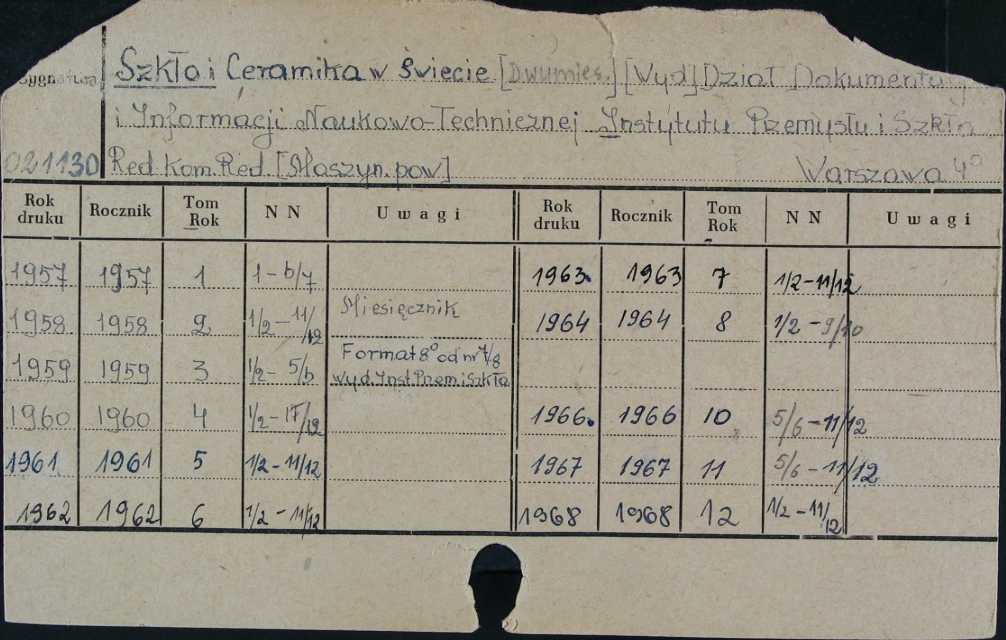 Sygnatura Szkło i Ceramika w Świecie [Dwumies.] [Wyd] Dział Dokumentacji
i Informacji Naukowo-Technicznej Instytutu Przemysłu i Szkła
021130 Red Kom. Red. [Maszyn. pow] Warszawa 4°
Rok druku Rocznik Tom Rok NN Uwagi Rok druku Rocznik Tom Rok NN Uwagi
1957 1957 1 1-6/7 1963 1963 7 1/2-11/12
1958 1958 2 1/2-11/12 Miesięcznik 1964 1964 8 1/2-9/10
1959 1959 3 1/2-5/6 Format 8° od nr 7/8
wyd. Inst. Przem. i Szkła
1960 1960 4 1/2-11/12 1966 1966 10 5/6-11/12
1961 1961 5 1/2-11/12 1967 1967 11 5/6-11/12
1962 1962 6 1/2-11/12 1968 1968 12 1/2-11/12